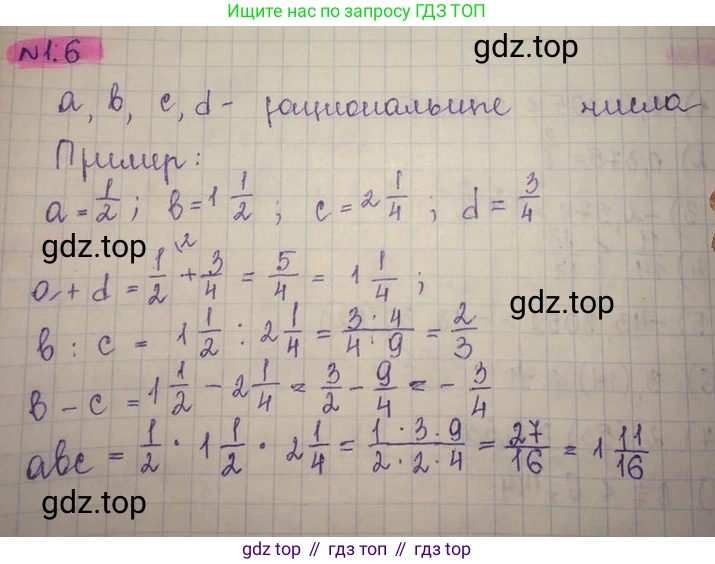 Ищите нас по запросу ГДЗ ТОП
№1.6
a, b, c, d - рациональные числа
Пример:
a = 1/2 ; b = 1 1/2 ; c = 2 1/4 ; d = 3/4
gdz.top
gdz.top
a + d = 1/2 \2 + 3/4 = 5/4 = 1 1/4 ;
gdz.top
b : c = 1 1/2 : 2 1/4 = 3 · 4 / 4 · 9 = 2/3
b - c = 1 1/2 - 2 1/4 = 3/2 - 9/4 = - 3/4
abc = 1/2 · 1 1/2 · 2 1/4 = 1 · 3 · 9 / 2 · 2 · 4 = 27/16 = 1 11/16
gdz.top
gdz.top
gdz top // гдз топ // gdz.top